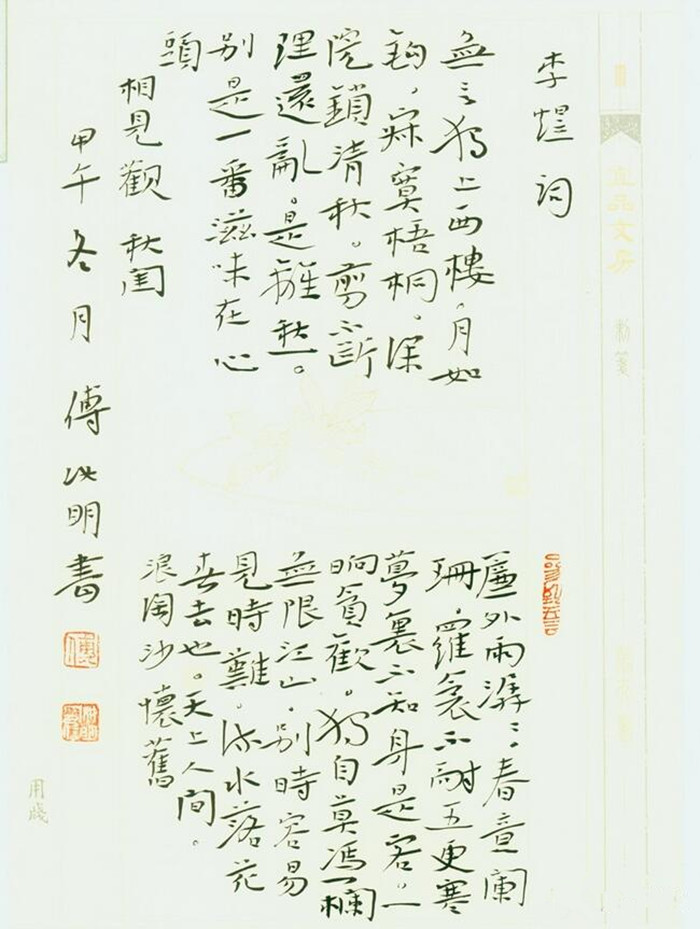 李煜詞
無言獨上西樓,月如
鈎,寂寞梧桐。深
院鎖清秋。剪不斷
理還亂。是離愁。
別是一番滋味在心
頭
相見歡 秋閨
簾外雨潺潺,春意闌
珊,羅衾不耐五更寒
夢裏不知身是客。一
晌貪歡。獨自莫馮欄
無限江山,別時容易
見時難。流水落花
春去也。天上人間。
浪淘沙 懷舊
甲午冬月 傅以明書
用牋